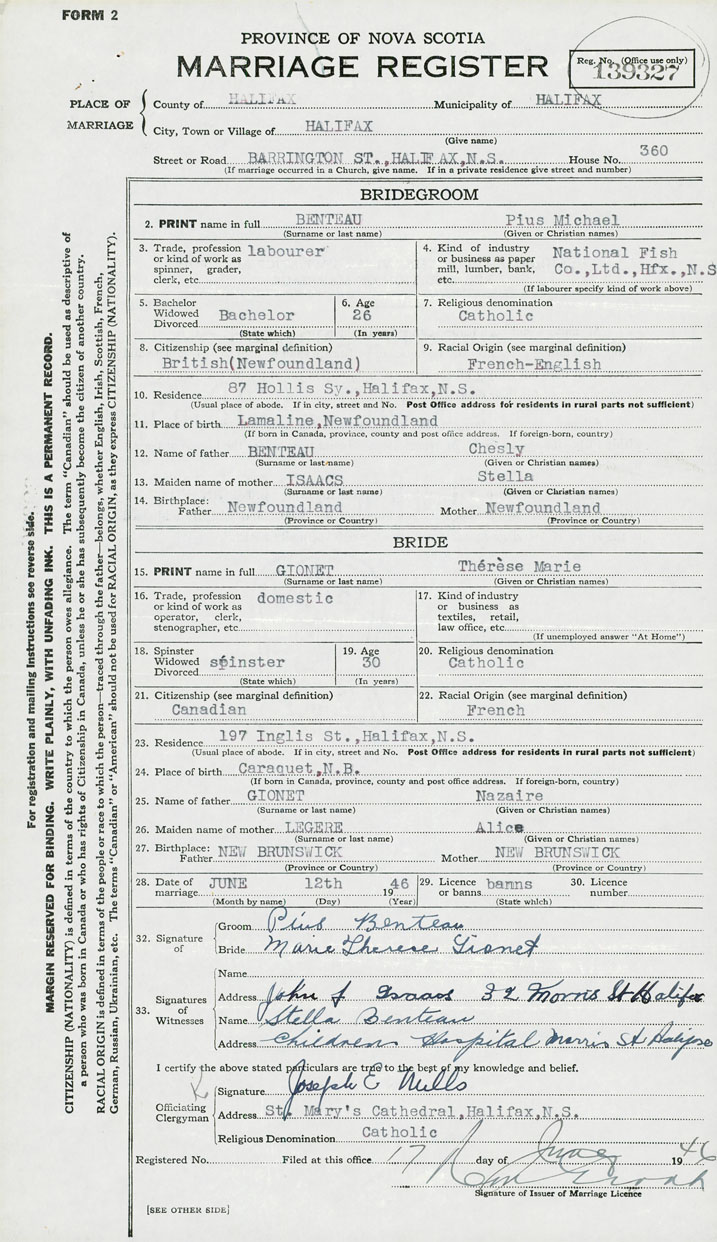 FORM 2
PROVINCE OF NOVA SCOTIA
MARRIAGE REGISTER
Reg. No. (Office use only)
139327
PLACE OF MARRIAGE
County of HALIFAX Municipality of HALIFAX
City, Town or Village of HALIFAX
(Give name)
Street or Road BARRINGTON ST.,HALIFAX,N.S. House No. 360
(If marriage occurred in a Church, give name. If in a private residence give street and number)
BRIDEGROOM
2. PRINT name in full BENTEAU Pius Michael
(Surname or last name) (Given or Christian names)
3. Trade, profession or kind of work as spinner, grader, clerk, etc. labourer
4. Kind of industry or business as paper mill, lumber, bank, etc. National Fish Co.,Ltd.,Hfx.,N.S
(If labourer specify kind of work above)
5. Bachelor Widowed Divorced Bachelor
(State which)
6. Age 26
(In years)
7. Religious denomination
Catholic
8. Citizenship (see marginal definition)
British(Newfoundland)
9. Racial Origin (see marginal definition)
French-English
10. Residence 87 Hollis Sy.,Halifax,N.S.
(Usual place of abode. If in city, street and No. Post Office address for residents in rural parts not sufficient)
11. Place of birth Lamaline,Newfoundland
(If born in Canada, province, county and post office address. If foreign-born, country)
12. Name of father BENTEAU Chesly
(Surname or last name) (Given or Christian names)
13. Maiden name of mother ISAACS Stella
(Surname or last name) (Given or Christian names)
14. Birthplace: Father Newfoundland Mother Newfoundland
(Province or Country) (Province or Country)
BRIDE
15. PRINT name in full GIONET Thérèse Marie
(Surname or last name) (Given or Christian names)
16. Trade, profession or kind of work as operator, clerk, stenographer, etc. domestic
17. Kind of industry or business as textiles, retail, law office, etc.
(If unemployed answer "At Home")
18. Spinster Widowed Divorced spinster
(State which)
19. Age 30
(In years)
20. Religious denomination
Catholic
21. Citizenship (see marginal definition)
Canadian
22. Racial Origin (see marginal definition)
French
23. Residence 197 Inglis St.,Halifax,N.S.
(Usual place of abode. If in city, street and No. Post Office address for residents in rural parts not sufficient)
24. Place of birth Caraquet,N.B.
(If born in Canada, province, county and post office address. If foreign-born, country)
25. Name of father GIONET Nazaire
(Surname or last name) (Given or Christian names)
26. Maiden name of mother LEGERE Alice
(Surname or last name) (Given or Christian names)
27. Birthplace: Father NEW BRUNSWICK Mother NEW BRUNSWICK
(Province or Country) (Province or Country)
28. Date of marriage JUNE 12th 1946
(Month by name) (Day) (Year)
29. Licence or banns banns
(State which)
30. Licence number
32. Signature of
Groom Pius Benteau
Bride Marie Therese Gionet
33. Signatures of Witnesses
Name
Address John J. Isaacs 32 Morris St Halifax
Name Stella Benteau
Address Childrens Hospital Morris St Halifax
I certify the above stated particulars are true to the best of my knowledge and belief.
Officiating Clergyman
Signature Joseph E Mills
Address St. Mary's Cathedral,Halifax,N.S.
Religious Denomination Catholic
Registered No. Filed at this office 17 day of June 1946
Signature of Issuer of Marriage Licence
[SEE OTHER SIDE]
For registration and mailing Instructions see reverse side.
MARGIN RESERVED FOR BINDING. WRITE PLAINLY, WITH UNFADING INK. THIS IS A PERMANENT RECORD.
CITIZENSHIP (NATIONALITY) is defined in terms of the country to which the person owes allegiance. The term "Canadian" should be used as descriptive of
a person who was born in Canada or who has rights of Citizenship in Canada, unless he or she has subsequently become the citizen of another country.
RACIAL ORIGIN is defined in terms of the people or race to which the person—traced through the father—belongs, whether English, Irish, Scottish, French,
German, Russian, Ukrainian, etc. The terms "Canadian" or "American" should not be used for RACIAL ORIGIN, as they express CITIZENSHIP (NATIONALITY).